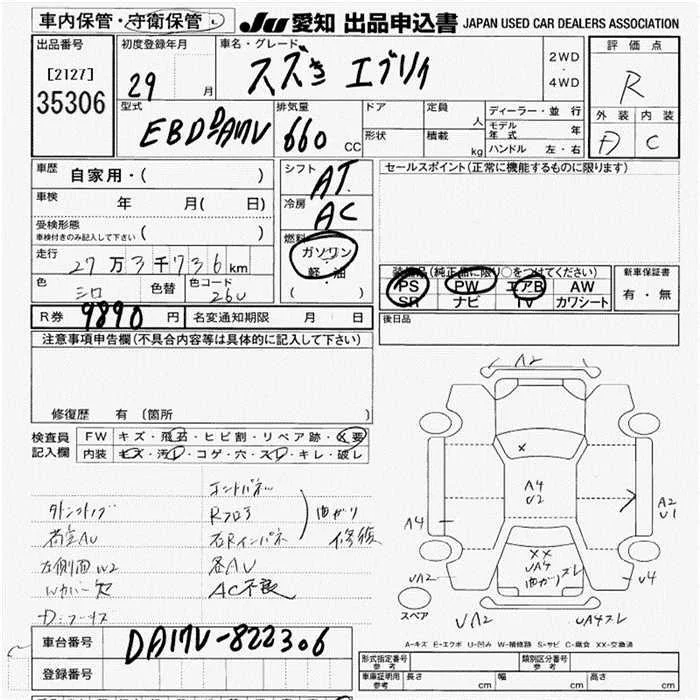 車内保管・守衛保管
JU 愛知 出品申込書 JAPAN USED CAR DEALERS ASSOCIATION
出品番号
[2127]
35306
初度登録年月
29 月
車名・グレード
スズキ エブリイ
2WD
・
4WD
評価点
R
外装 内装
C
型式
排気量
660 CC
ドア
形状
定員 人
積載 kg
ディーラー・並行
モデル年式 年
ハンドル 左・右
車歴
自家用・( )
車検
年 月( 日)
受検形態
車検付きのみ記入して下さい ( )
走行
27万3千736km
色
シロ
色替
色コード
26U
シフト
AT
冷房
AC
燃料
ガソリン
・
軽・油
( )
セールスポイント(正常に機能するものに限ります)
装備品(純正品に限り○をつけてください)
PS PW エアB AW
SR ナビ TV カワシート
新車保証書
有・無
R券 9890 円
名変通知期限 月 日
後日品
注意事項申告欄(不具合内容等は具体的に記入して下さい)
修復歴 有 (箇所
検査員
記入欄
FW キズ・飛石・ヒビ割・リペア跡・X要
内装 キズ・汚レ・コゲ・穴・スレ・キレ・破レ
Rフロア
曲がり
修復
左側面W2
各AU
Wカバー欠
AC不良
A2
X
A4
U2
A4
A2
U1
XX
UA4
曲がり
ズレ
UA2
U4
スペア
UA2
UA4ズレ
A-キズ E-エクボ U-凹み W-補修跡 S-サビ C-腐食 XX-交換済
車台番号
DA17V-822306
登録番号
形式指定番号
参考
類別区分番号
参考
車庫証明用
参考
長さ cm
幅 cm
高さ cm